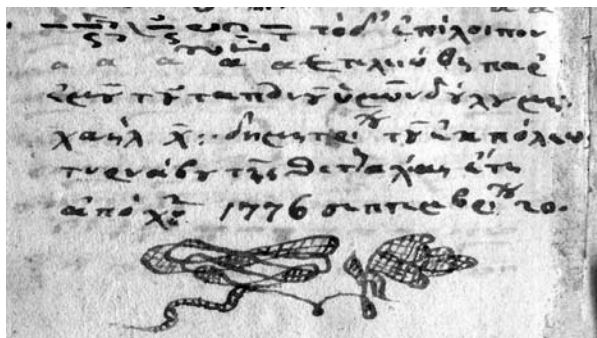 τὸ δ' ἐπίλοιπον
α α α α α ἐτελειώθη παρ'
ἐμοῦ τοῦ ταπεινοῦ ὑμῶν δούλου μι
χαὴλ χ:: δημητρίου τοῦ ἐκ πόλεως
τυρνάβου τῆς θετταλίας ἔτη
ἀπὸ χυ 1776 σεπτεμβρίου 20.